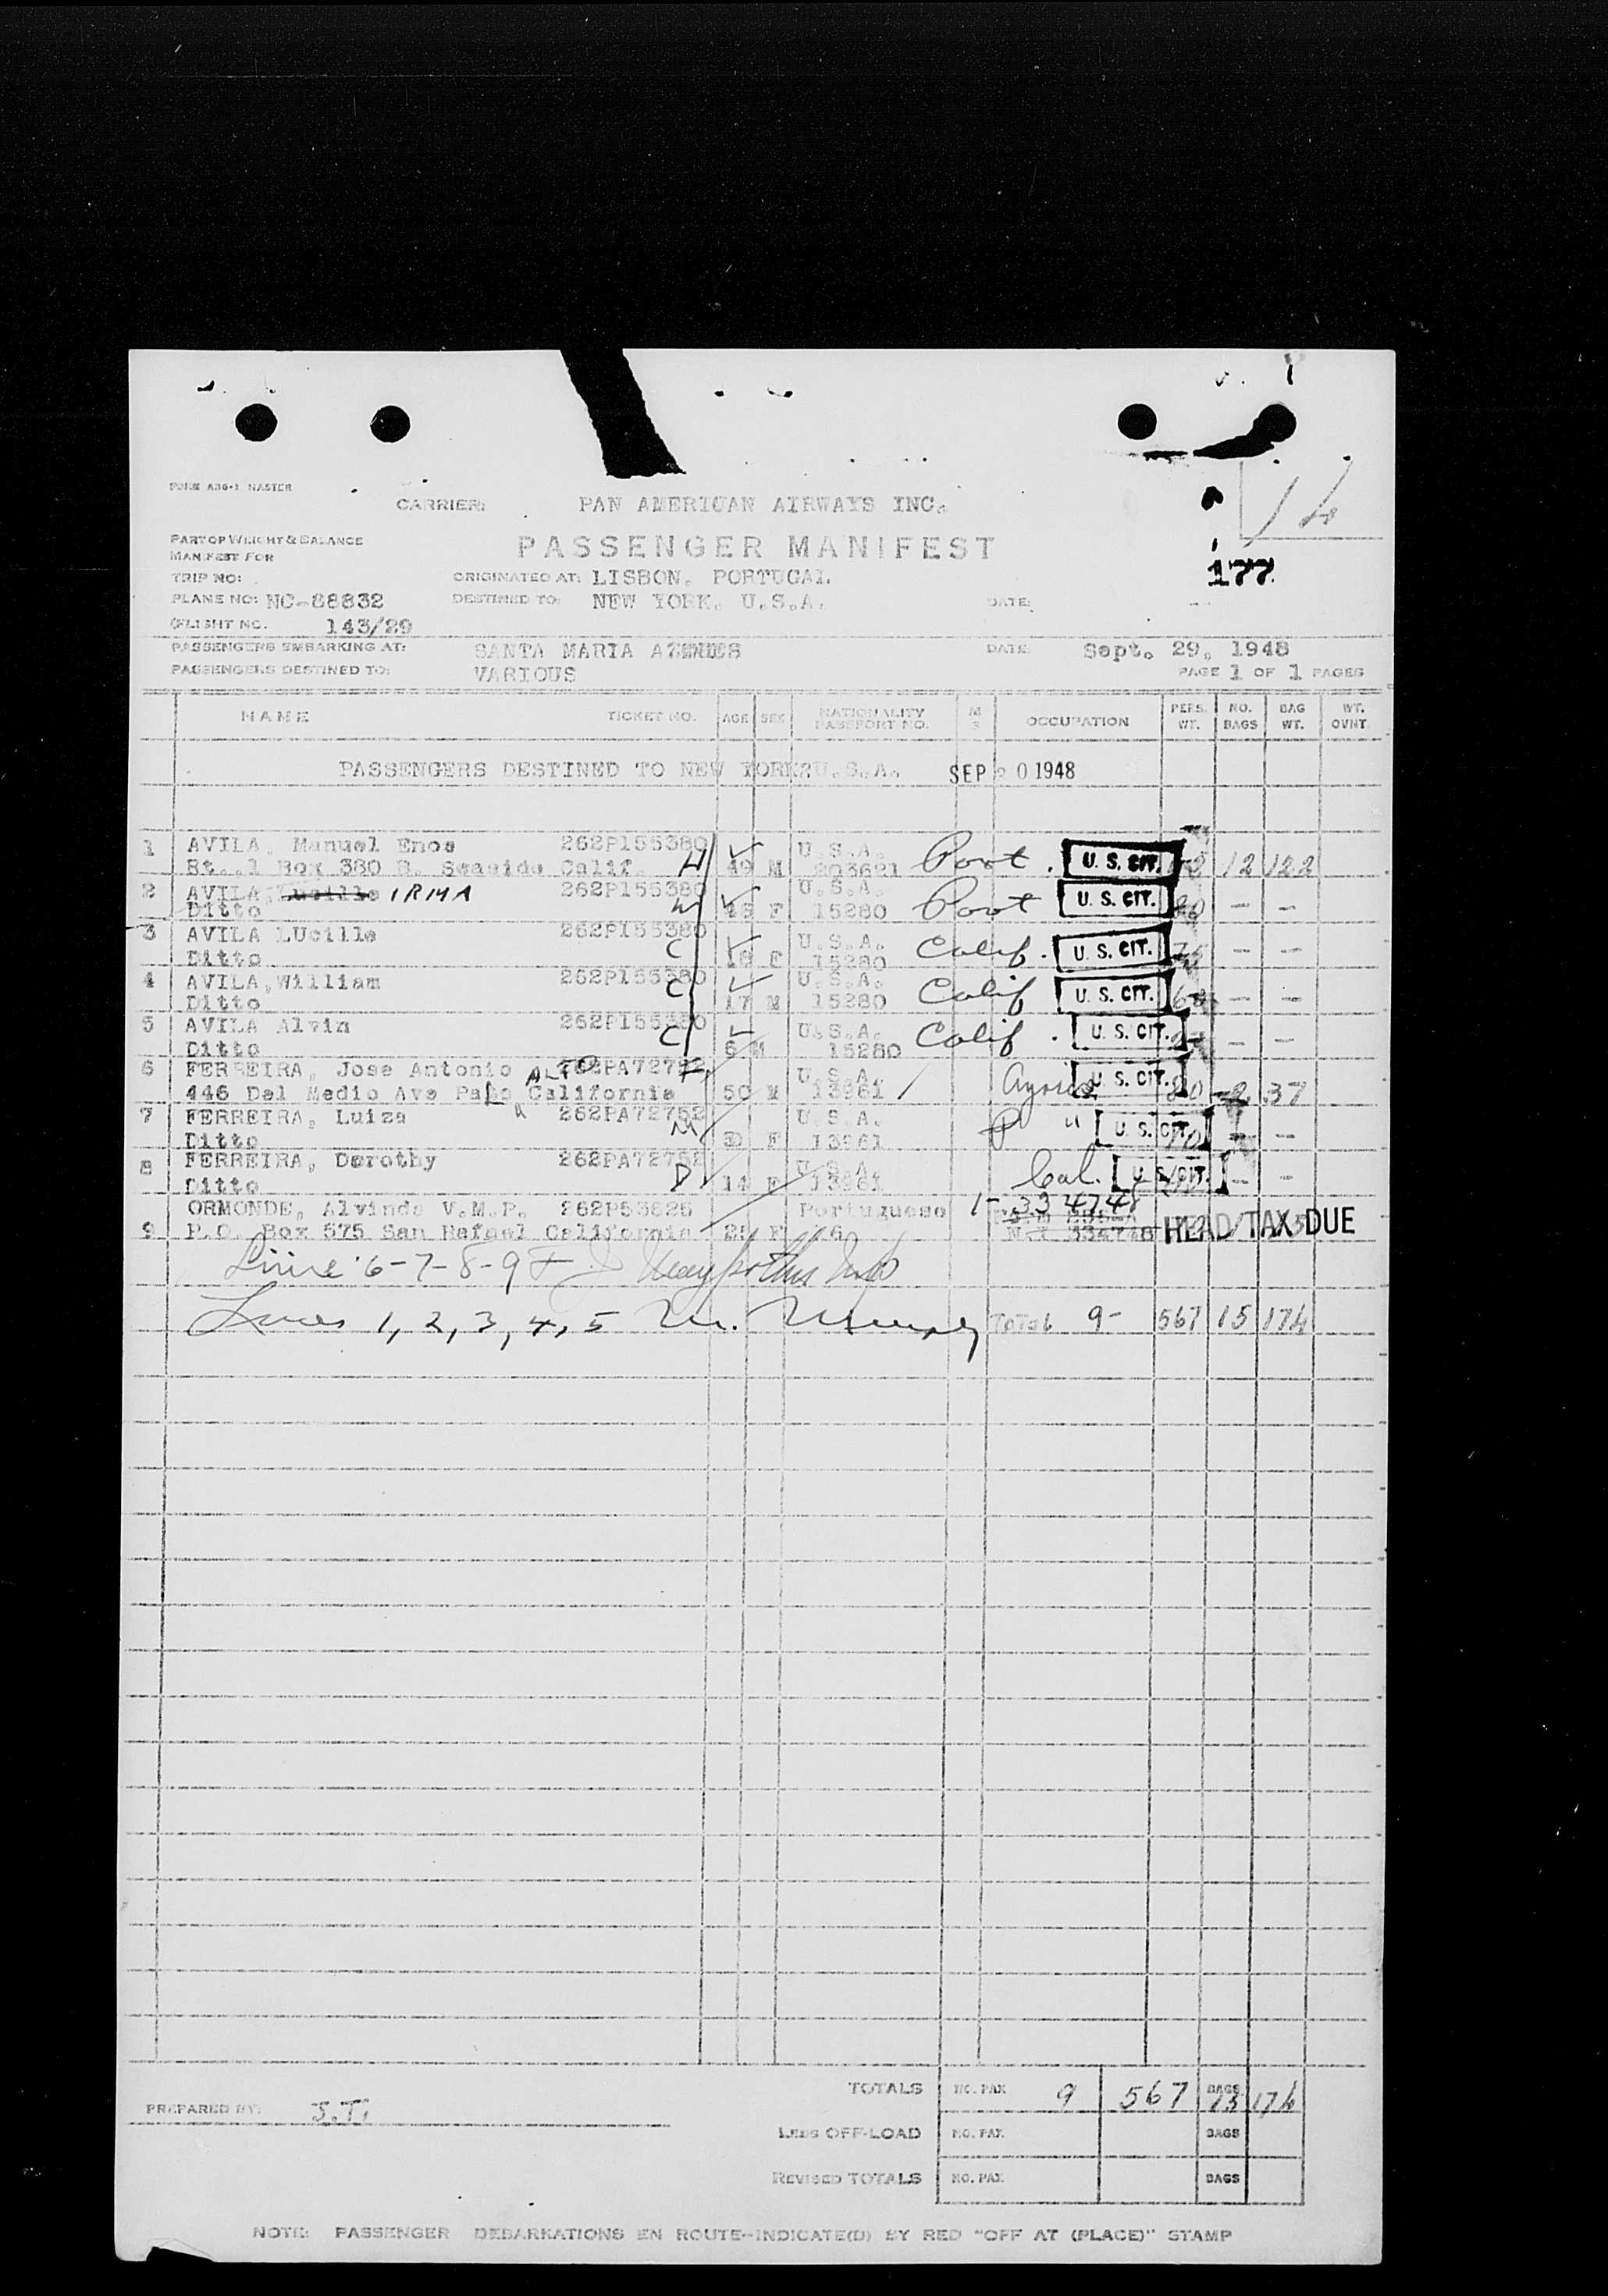 FORM A36-1 MASTER
CARRIER: PAN AMERICAN AIRWAYS INC.
14
PART OF WEIGHT & BALANCE
MANIFEST FOR
PASSENGER MANIFEST
177
TRIP NO: ORIGINATED AT: LISBON, PORTUGAL
PLANE NO: NC-88832 DESTINED TO: NEW YORK, U.S.A. DATE:
FLIGHT NO. 143/29
PASSENGERS EMBARKING AT: SANTA MARIA DATE: Sept. 29, 1948
PASSENGERS DESTINED TO: VARIOUS PAGE 1 OF 1 PAGES
NAME TICKET NO. AGE SEX NATIONALITY PASSPORT NO. M S OCCUPATION PERS. WT. NO. BAGS BAG WT. WT. OVNT.
PASSENGERS DESTINED TO NEW YORK U.S.A. SEP 0 1948
1 AVILA, Manuel Enos 262P155380 U.S.A. Port. U. S. CIT.
Rt..1 Box 380 B. Seaside Calif. H 49 M 203621 12 122
2 AVILA, IRMA 262P155380 U.S.A. Port U. S. CIT.
Ditto W F 15280 - -
3 AVILA LUcille 262P155380 U.S.A. Calif. U. S. CIT.
Ditto C 18 F 15280 - -
4 AVILA, William 262P155380 U.S.A. Calif U. S. CIT.
Ditto C 17 M 15280 - -
5 AVILA Alvin 262P155380 U.S.A. Calif. U. S. CIT.
Ditto C 6 M 15280 - -
6 FERREIRA, Jose Antonio ALTO 262PA72752 U.S.A. U. S. CIT.
446 Del Medio Ave Palo California 50 M 13961 80 2 37
7 FERREIRA, Luiza 262PA72752 U.S.A. P " U. S. CIT.
Ditto F 13961 - -
8 FERREIRA, Dorothy 262PA72752 U.S.A. Cal. U. S. CIT.
Ditto D 14 F 13961 - -
ORMONDE, Alvinda V.M.P. 262P53625 Portuguese 1-334748
9 P.O. Box 575 San Rafael California 25 F 6 334748 HEAD TAX DUE
Line 6-7-8-9
Lines 1, 2, 3, 4, 5 M. Total 9- 567 15 174
TOTALS NO. PAX 9 567 BAGS 15 174
PREPARED BY: J.T.
LESS OFF-LOAD NO. PAX BAGS
REVISED TOTALS NO. PAX BAGS
NOTE: PASSENGER DEBARKATIONS EN ROUTE-INDICATE(D) BY RED "OFF AT (PLACE)" STAMP